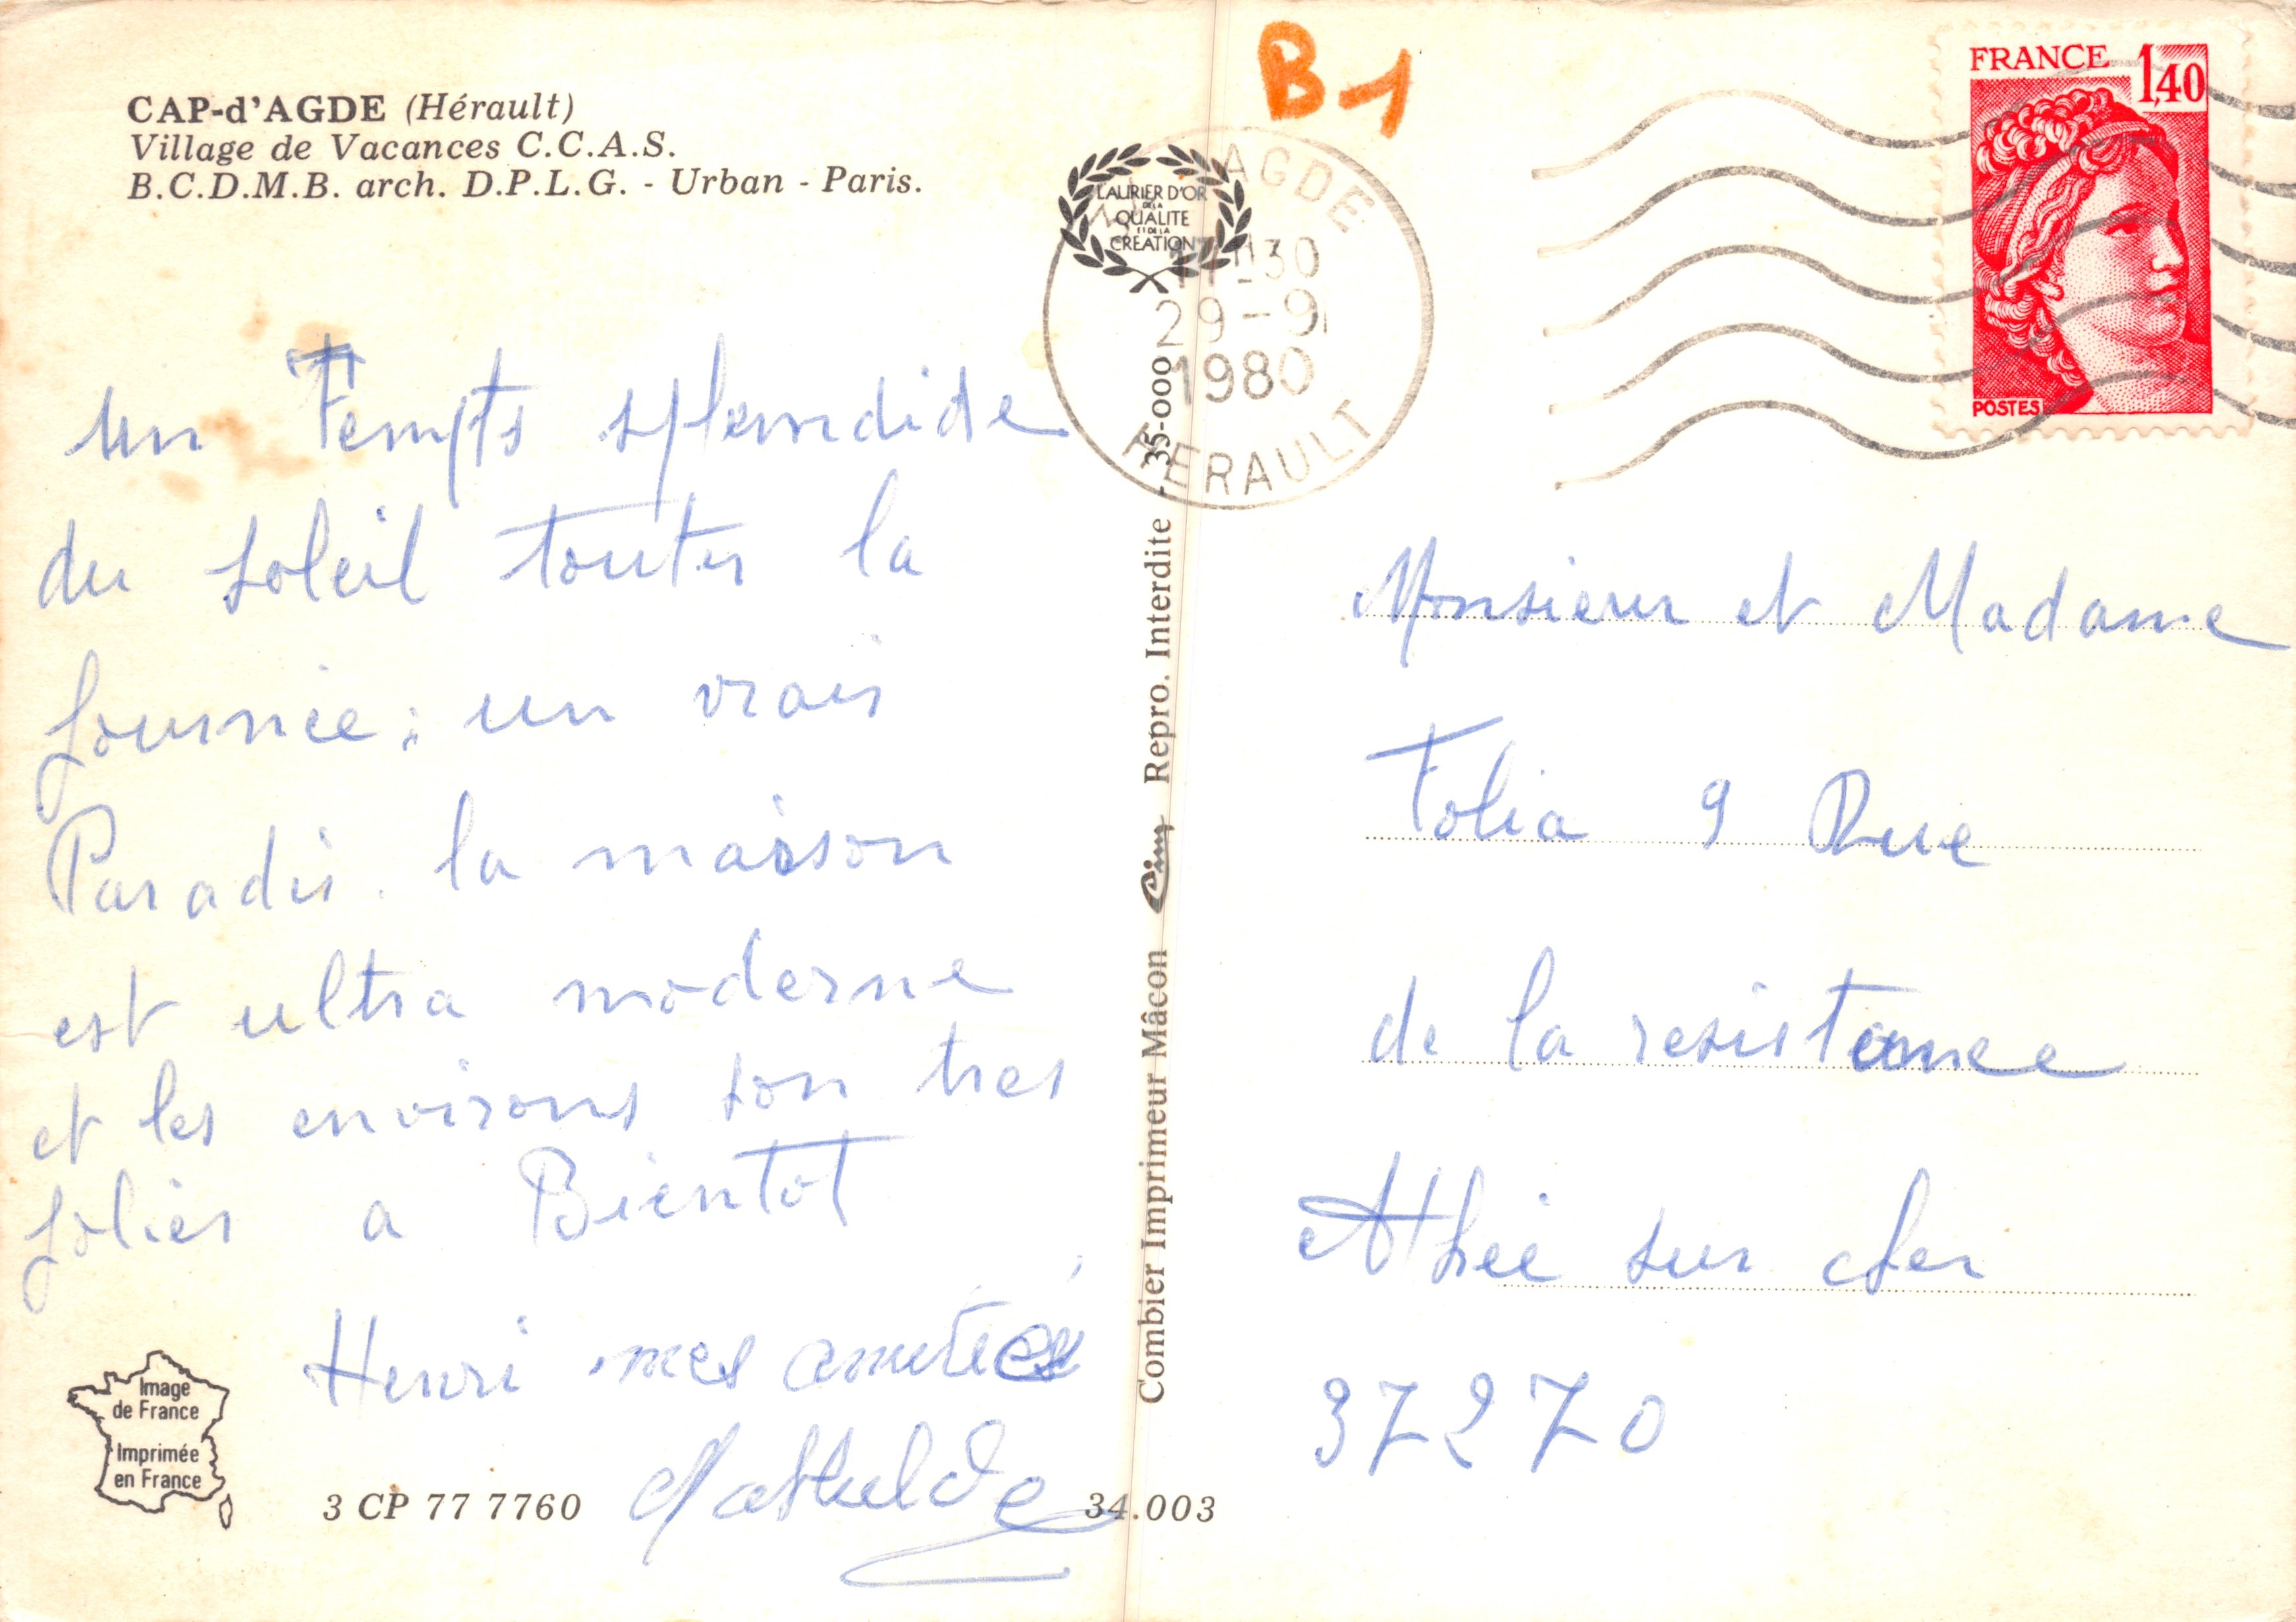 CAP-d'AGDE (Hérault)
Village de Vacances C.C.A.S.
B.C.D.M.B. arch. D.P.L.G. - Urban - Paris.
un Tempts splendide
du soleil toutes la
journée; un vrais
Paradis. la maison
est ultra moderne
et les environs son tres
jolies a Bientot
Henri mes amitiés
Mathilde
Image
de France
Imprimée
en France
3 CP 77 7760
34.003
Combier Imprimeur Mâcon Cim Repro. Interdite - 35-000
LAURIER D'OR
DE LA
QUALITE
ET DE LA
CREATION
B1
AGDE
30
29-9
1980
HERAULT
FRANCE 1,40
POSTES
Monsieur et Madame
Folia 9 Rue
de la resistance
Athée sur cher
37270